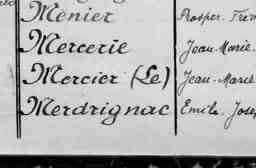 Menier Prosper. Trem
Mercerie Jean-Marie.
Mercier (Le) Jean-Marie
Merdrignac Emile. Jose